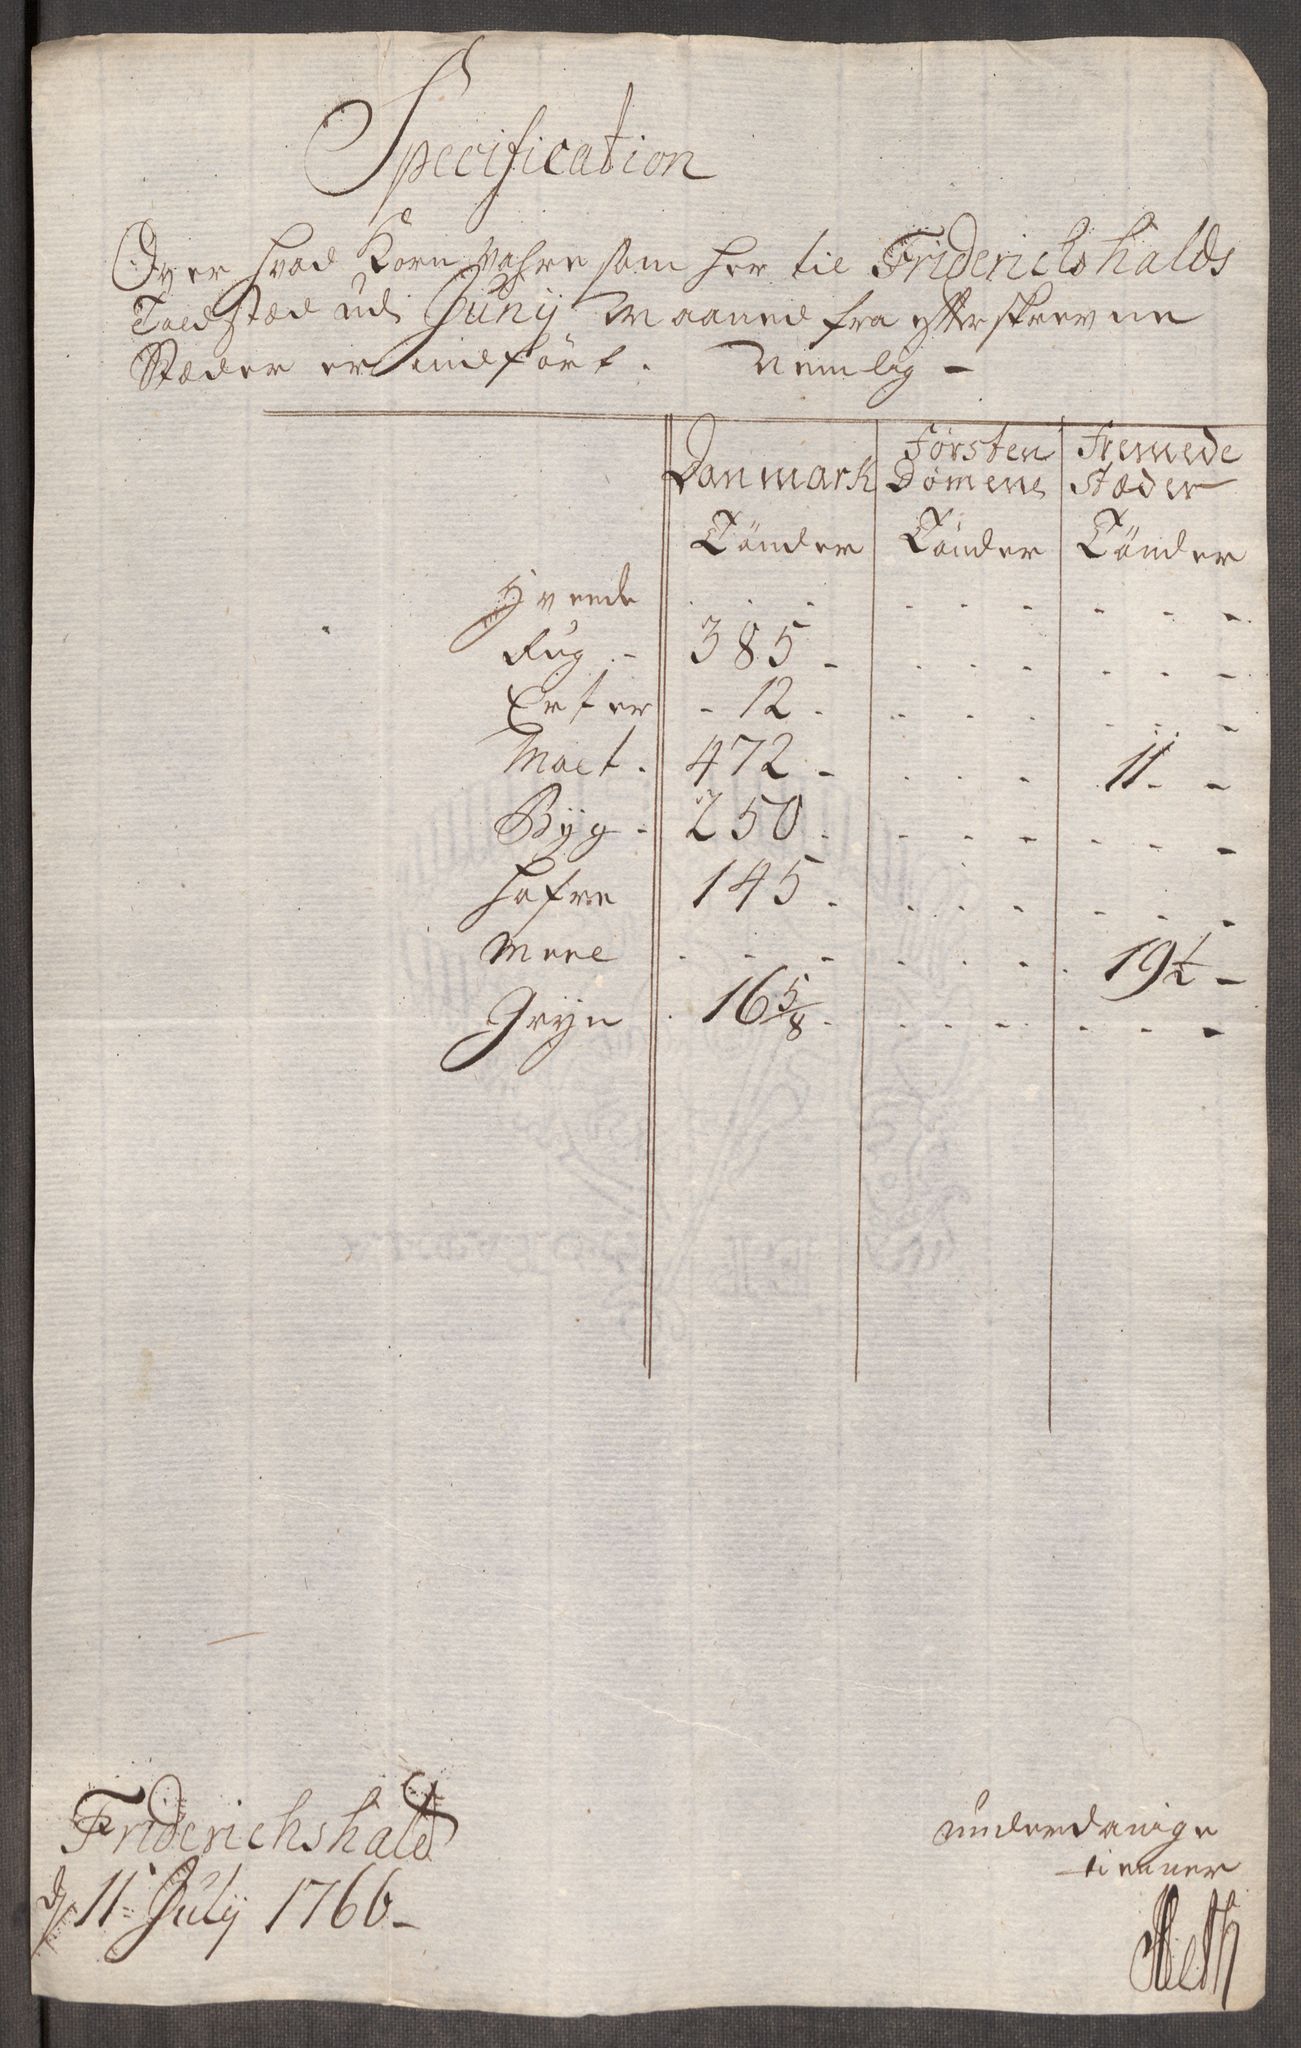 Specification
Over hvad Korn Vahre som her til Friderichshalds
Toldstæd udi Juny Maaned fra efterskrevne
Stæder er indført. Nemlig -
Danmark | Førsten Dømene | Fremede stæder
Tønder | Tønder | Tønder
Hvede . . . | . . . | - - -
Rug - 385 - | . . . | . . -
Erter - 12 - | . . . | . . -
Malt - 472 - | . . - | 11 - -
Byg - 250 - | - - - | - - -
Hafre 145 - | . . - | - - -
Meel . . - | - - - | 19½ -
Gryn 16 5/8 - | - - - | - - -
Friderichshald
d 11 July 1766 -
underdanige
tienner